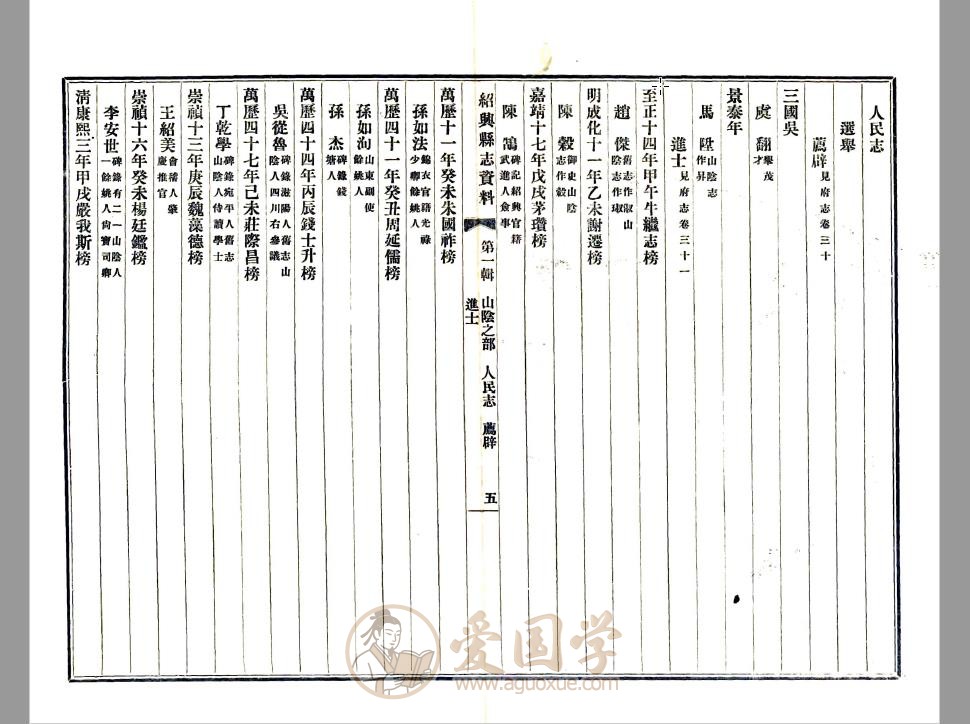 人民志
選舉
薦辟見府志卷三十
三國吳
虞翻舉茂才
景泰年
馬陞山陰志作昇
進士見府志卷三十一
至正十四年甲午牛繼志榜
趙傑舊志作俶山陰志作琡
明成化十一年乙未謝遷榜
陳穀御史山陰志作轂
嘉靖十七年戊戌茅瓚榜
陳鵠碑記紹興官籍武進人僉事
紹興縣志資料 第一輯 山陰之部 人民志 薦辟 進士 五
萬歷十一年癸未朱國祚榜
孫如法錦衣官籍光祿少卿餘姚人
萬歷四十一年癸丑周延儒榜
孫如洵山東副使餘姚人
孫杰碑錄錢塘人
萬歷四十四年丙辰錢士升榜
吳從魯碑錄滋陽人舊志山陰人四川右參議
萬歷四十七年己未莊際昌榜
丁乾學碑錄宛平人舊志山陰人侍讀學士
崇禎十三年庚辰魏藻德榜
王紹美會稽人肇慶推官
崇禎十六年癸未楊廷鑑榜
李安世碑錄有二一山陰人一餘姚人尙寶司卿
清康熙三年甲戌嚴我斯榜
爱国学
www.aguoxue.com